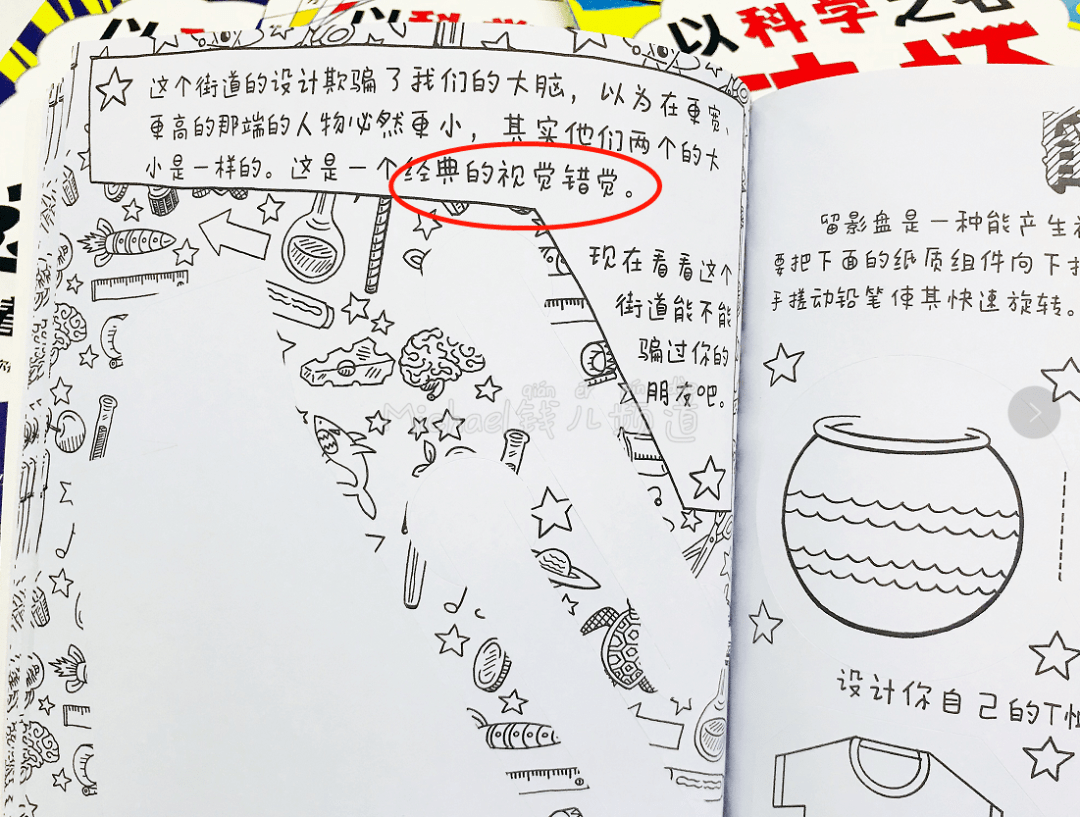 以科学之
以科学之名
这个街道的设计欺骗了我们的大脑，以为在更宽、
更高的那端的人物必然更小，其实他们两个的大
小是一样的。这是一个经典的视觉错觉。
现在看看这个
街道能不能
骗过你的
朋友吧。
qián ér pín dào
Michael钱儿频道
留影盘是一种能产生视
要把下面的纸质组件向下折
手搓动铅笔使其快速旋转。
设计你自己的T恤